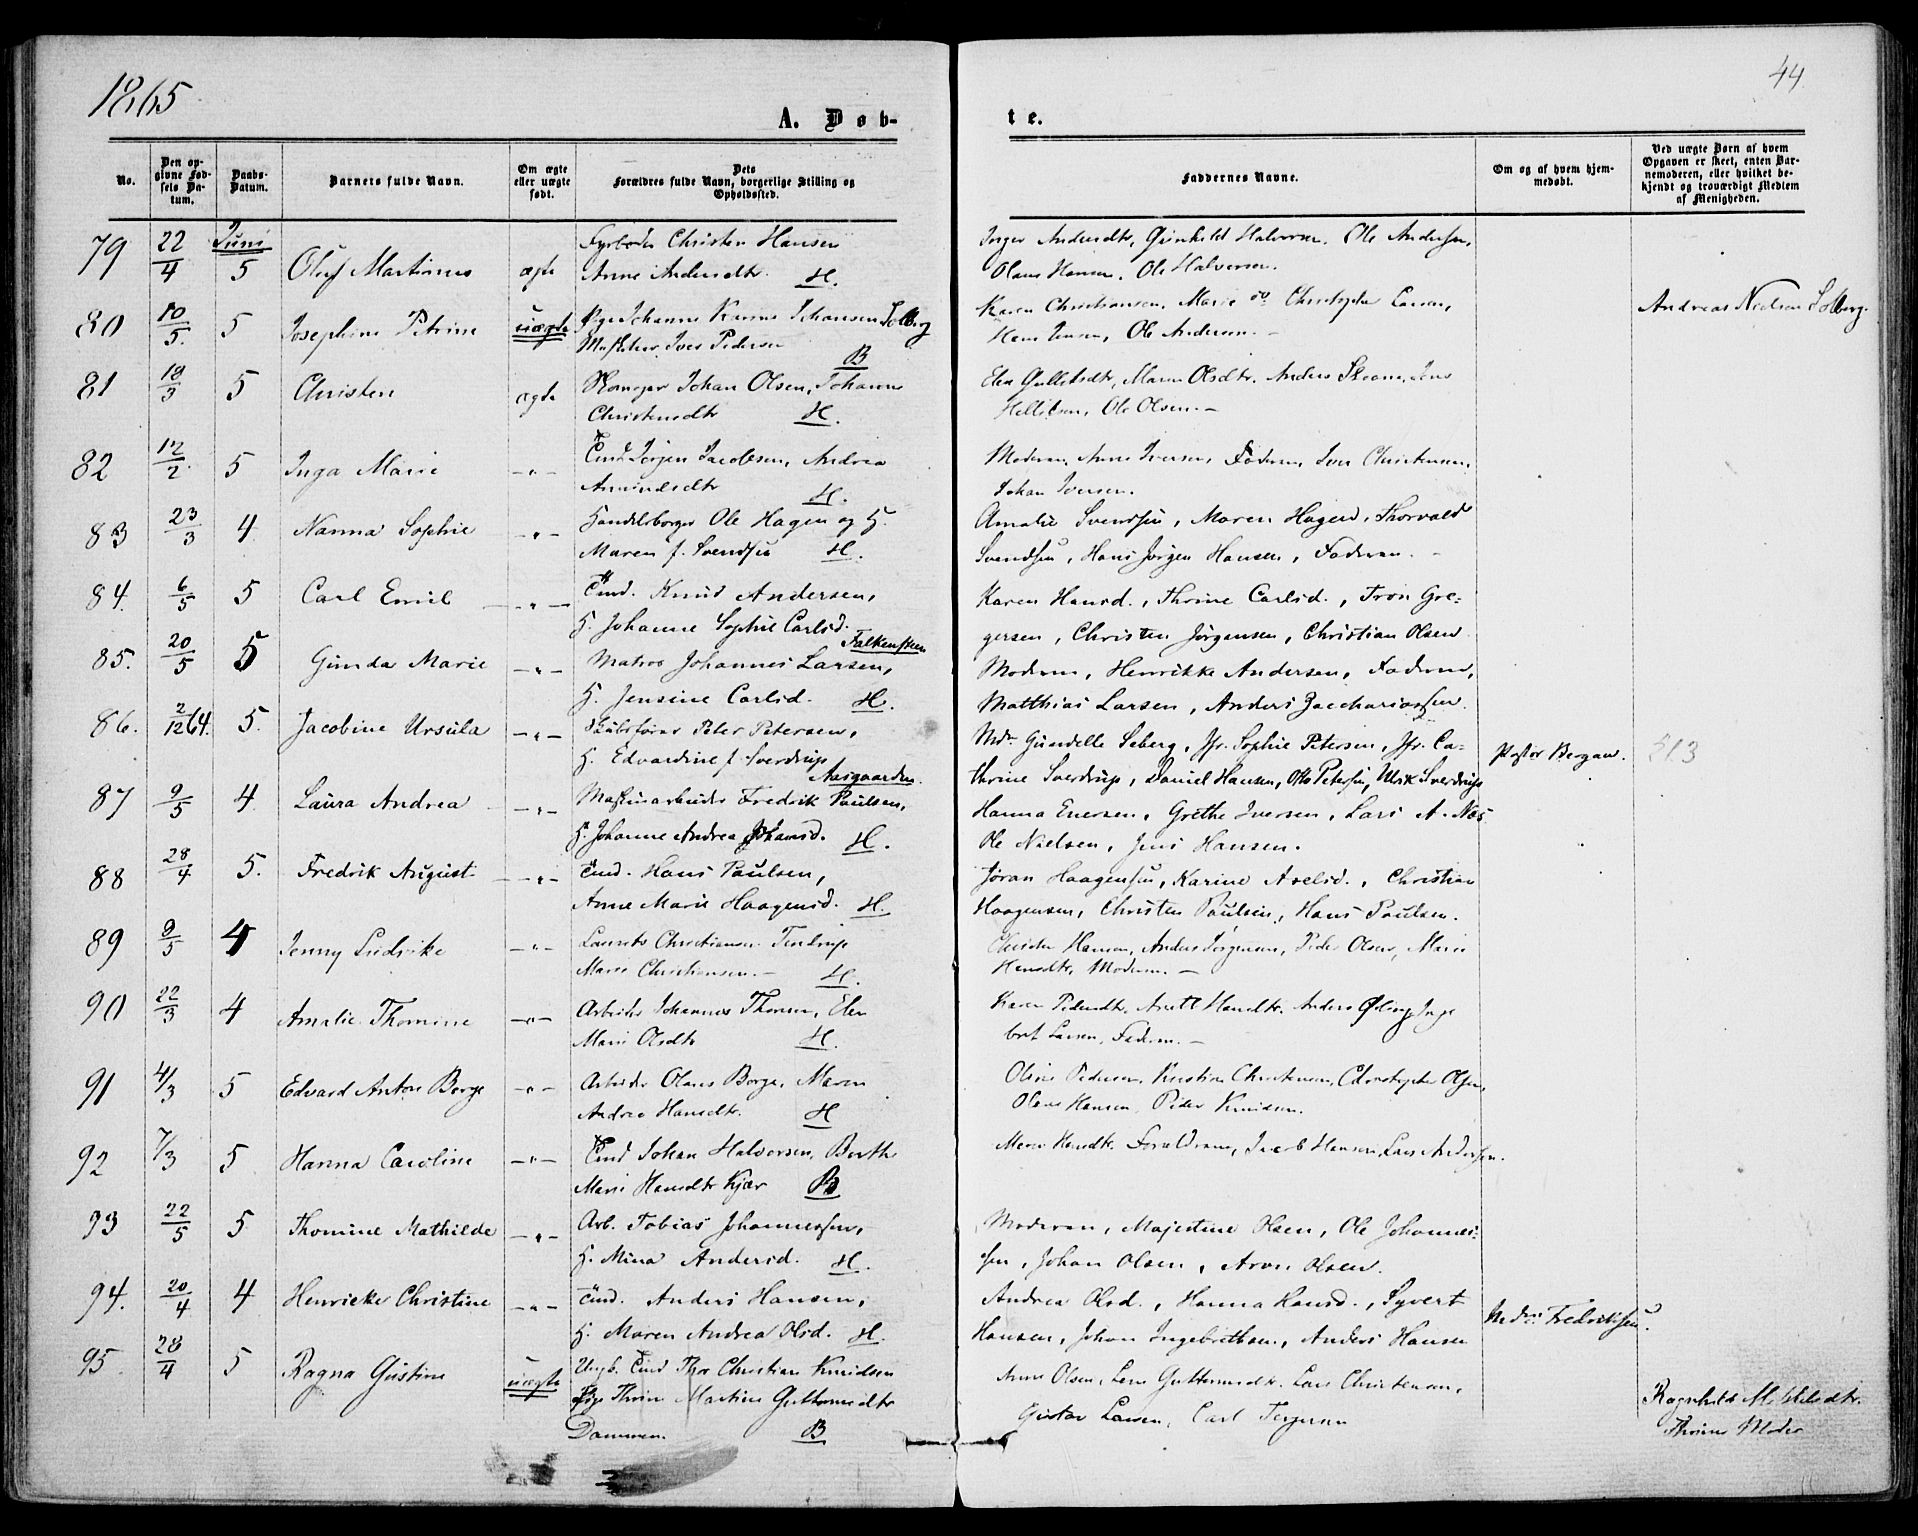 1865
44
A. Døb-
te.
No.
Den op-
givne Fød-
sels Da-
tum.
Daabs-
Datum.
Barnets fulde Navn.
Om ægte
eller uægte
født.
Dets
Forældres fulde Navn, borgerlige Stilling og
Opholdssted.
Faddernes Navne.
Om og af hvem hjem-
medøbt.
Ved uægte Børn af hvem
Opgaven er skeet, enten Bar-
nemoderen, eller hvilket be-
kjendt og troværdigt Medlem
af Menigheden.
Juni
79 22/4 5 Oluf Martinius ægte Fyrbøder Christen Hansen
Anne Andersdtr. H.
Inger Andersdtr, Gunhild Halvorsen, Ole Andersen,
Olaus Hansen, Ole Halvorsen.
80 10/5. 5 Josephine Petrine uægte Pge Johanne Karine Johansen Solberg
Ives Pedersen B
Karen Christiansen, Marie og Christopher Larsen,
Hans Jensen, Ole Andersen. -
Andreas Nielsen Solberg.
81 18/3 5 Christen ægte Skomager Johan Olsen, Johanne
Christensdtr H.
Elen Gulliksdtr, Maren Olsdtr. Anders Jens
Ole Olsen. -
82 12/2. 5 Inga Marie -"- Tind. Jörgen Jacobsen, Andrea
Amundsdtr H.
Moderen, Anne Iversen, Faderen, Iver Christensen,
Johan Iversen.
83 23/3 4. Nanna Sophie -"- Handelsborger Ole Hagen og H.
Maren f. Svendsen H.
Amalie Svendsen, Maren Hagen, Thorvald
Svendsen, Hans Jörgen Hansen, Faderen. -
84. 6/5 5 Carl Emil -"- Tind. Knud Andersen,
H. Johanne Sophie Carlsd.
Falkensten
Karen Hansd., Thrine Carlsd., Tron Gre-
gersen, Christen Jörgensen, Christian Olsen
85. 20/5 5 Gunda Marie -"- Matros Johannes Larsen,
H. Jensine Carlsd. H.
Moderen, Henrikke Andersen, Faderen,
Matthias Larsen, Anders Zacchariassen.
86. 2/12 64. 5. Jacobine Ursula -"- Skibsfører Peter Petersen,
H. Edvardine f. Sverdrup
Aasgaarden.
Mdm Gundelle Seberg, Jfr. Sophie Petersen, Jfr. Ca-
thrine Sverdrup, Daniel Hansen, Otto Petersen, Ulrik Sverdrup
Pastor Bergan. 313
87 9/5 4. Laura Andrea -"- Maskinarbeider Fredrik Paulsen,
H. Johanne Andrea Johansd. H.
Hanna Evensen, Grethe Iversen, Lars A. Næs
Ole Nielsen, Jens Hansen.
88 28/4 5. Fredrik August -"- Tind. Hans Paulsen,
Anne Marie Haagensd. H.
Jöran Haagensen, Karine Axelsd., Christian
Haagensen, Christen Paulsen, Hans Paulsen.
89 9/5 4 Jenny Ludvike -"- Laurits Christiansen
Marie Christiansen. - H.
Christen Hansen, Anders Jørgensen, Peder Olsen, Marie
Hansdtr, Moderen. -
90 22/3 4 Amalie Thomine -"- Arbeider Johannes Thorsen, Elen
Marie Olsdtr H.
Karen Pedersdtr, Anette Hansdtr, Anders Inge
bret Larsen, Faderen. -
91 4/3 5 Edvard Anton Borge -"- Arbeider Olaus Borge, Maren
Andrea Hansdtr. H
Oline Pedersen, Kristine Christensen, Christopher Olsen,
Olaus Hansen, Peder Knudsen.
92 7/3 5 Hanna Caroline -"- Tind Johan Halvorsen, Berthe
Marie Hansdtr Kjær B
Maren Hansdtr. Forældrene, Jacob Hansen, Lars Andersen.
93 22/5 5 Thomine Mathilde -"- Arb. Tobias Johannessen,
H. Mina Andersd. H.
Moderen, Majestine Olsen, Ole Johannes-
sen, Johan Olsen, Aron Olsen.
94. 20/4 4 Henrieke Christine -"- Tind. Anders Hansen,
H. Maren Andrea Olsd. H.
Andrea Olsd., Hanna Hansd., Syvert
Hansen, Johan Ingebrethsen, Anders Hansen
Md. Fredriksen.
95. 28/4 5 Ragna Gustine uægte Ungk. Tind Thor Christian Knudsen
Pge Thrine Martine Guttormsdtr
Dammen. B
Anne Olsen, Lene Guttormsdtr. Lars Christensen,
Gustav Larsen, Carl Torgersen
Ragnhild M.
Thrines Moder